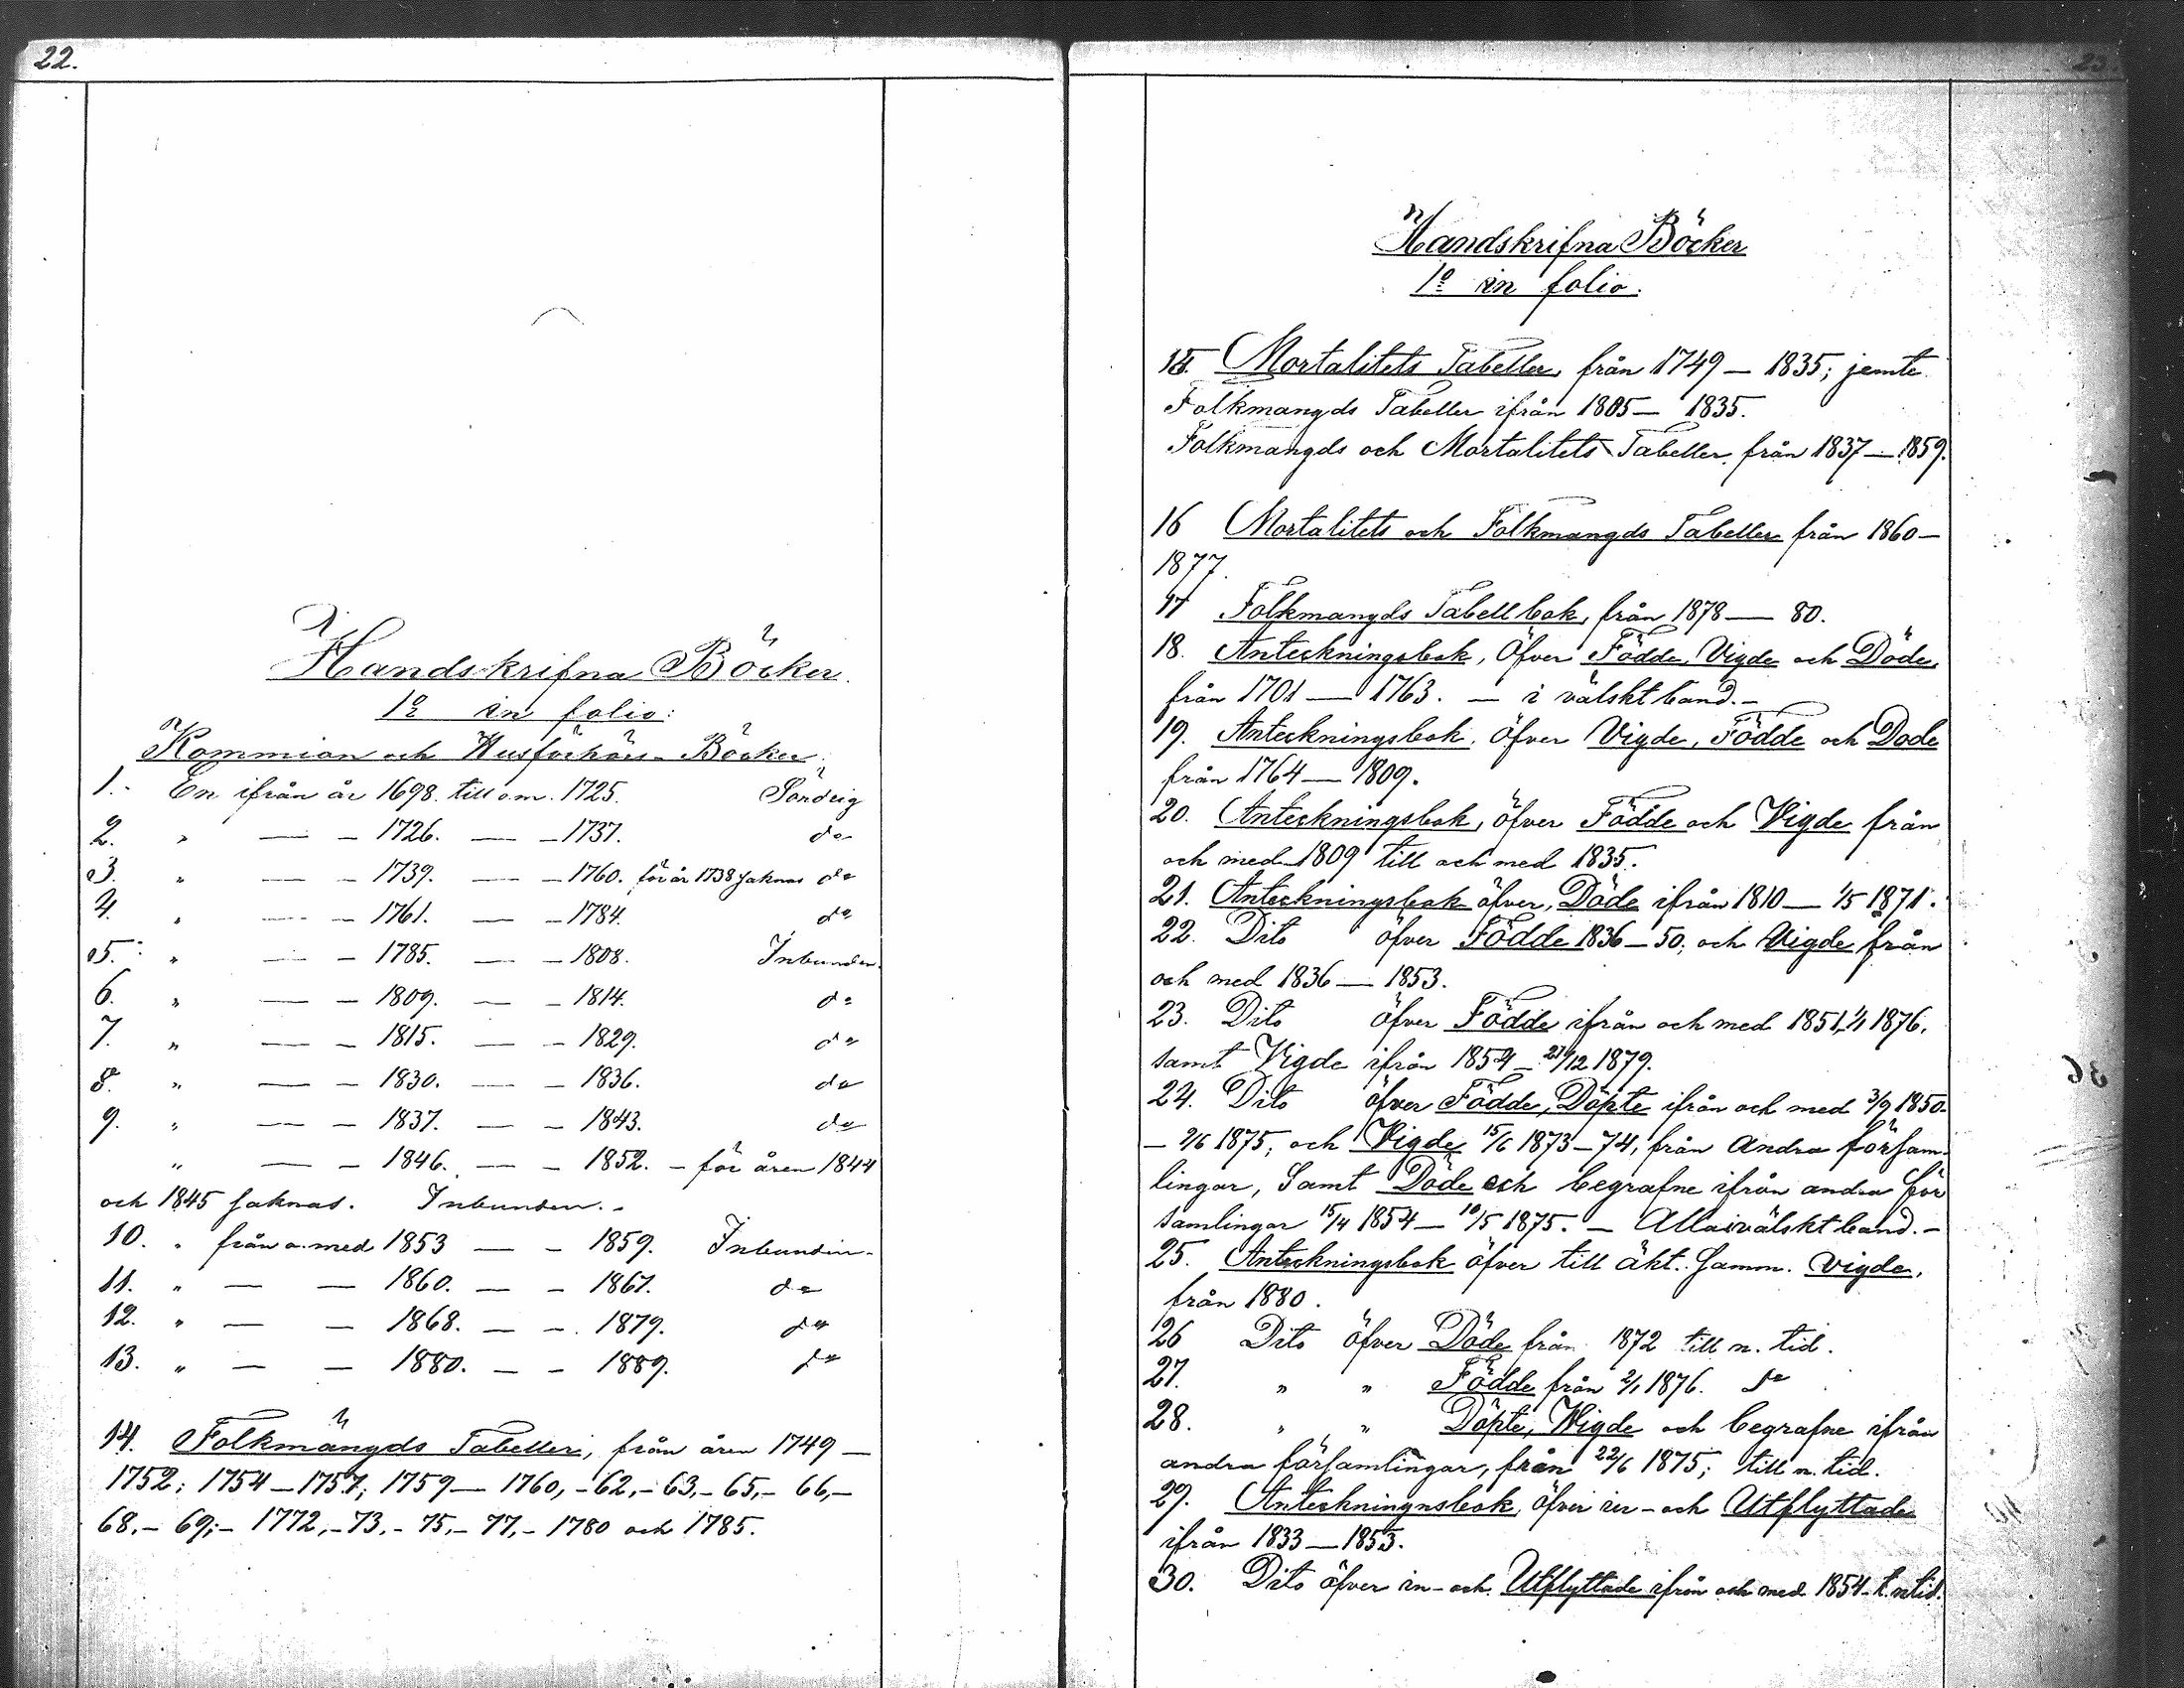 22.
Handskrifna Böcker.
1o in folio:
Kommion och Husförhörs-Böcker.
1. En ifrån år 1698. till o.m. 1725. Söndrig
2. " — — 1726. — — 1737. do
3. " — — 1739. — — 1760. för år 1738 saknas do
4. " — — 1761. — — 1784. do
5. " — — 1785. — — 1808. Inbunden.
6. " — — 1809. — — 1814. do
7. " — — 1815. — — 1829. do
8. " — — 1830. — — 1836. do
9. " — — 1837. — — 1843. do
" — — 1846. — — 1852. — för åren 1844
och 1845 saknas. Inbunden. -
10. " från o. med 1853 — — 1859. Inbunden.
11. " — — 1860. — — 1867. do
12. " — — 1868. — — 1879. do
13. " — — 1880. — — 1889. do
14. Folkmängds Tabeller, från åren 1749 —
1752; 1754 — 1757; 1759 — 1760, - 62, - 63, - 65, - 66, -
68, - 69; - 1772, - 73, - 75, - 77, - 1780 och 1785.
23.
Handskrifna Böcker
1o in folio.
15. Mortalitets Tabeller, från 1749 — 1835; jemte
Folkmangds Tabeller ifrån 1805 — 1835.
Folkmangds och Mortalitets Tabeller, från 1837 — 1859.
16 Mortalitets och Folkmangds Tabeller från 1860 —
1877.
17 Folkmangds Tabellbok, från 1878 — 80.
18. Anteckningsbok, Öfver Födde, Vigde och Döde,
från 1701 — 1763. — i välskt band. -
19. Anteckningsbok, Öfver Vigde, Födde och Dode
från 1764 — 1809.
20. Anteckningsbok, öfver Födde och Vigde från
och med 1809 till och med 1835.
21. Anteckningsbok öfver, Döde ifrån 1810 — 1/5 1871.
22. Dito öfver Födde 1836 — 50; och Vigde från
och med 1836 — 1853.
23. Dito öfver Födde ifrån och med 1851, 1/1 1876,
samt Vigde ifrån 1854 — 27/12 1879.
24. Dito öfver Födde, Döpte ifrån och med 3/9 1850.
— 9/6 1875; och Vigde 15/6 1873 — 74, från andra försam-
lingar, Samt Döde och begrafne ifrån andra för
samlingar 15/4 1854 — 10/5 1875. — Alla i välskt band. -
25. Anteckningsbok öfver till äkt. samm. Vigde,
från 1880.
26 Dito öfver Döde från 1872 till n. tid.
27. " " Födde från 2/1 1876. do
28. " " Döpte, Wigde och begrafne ifrån
andra församlingar, från 22/6 1875; till n. tid.
29. Anteckningnsbok, öfver in- och Utflyttade
ifrån 1833 — 1853.
30. Dito öfver in- och Utflyttade ifrån och med 1854 - t. n tid.